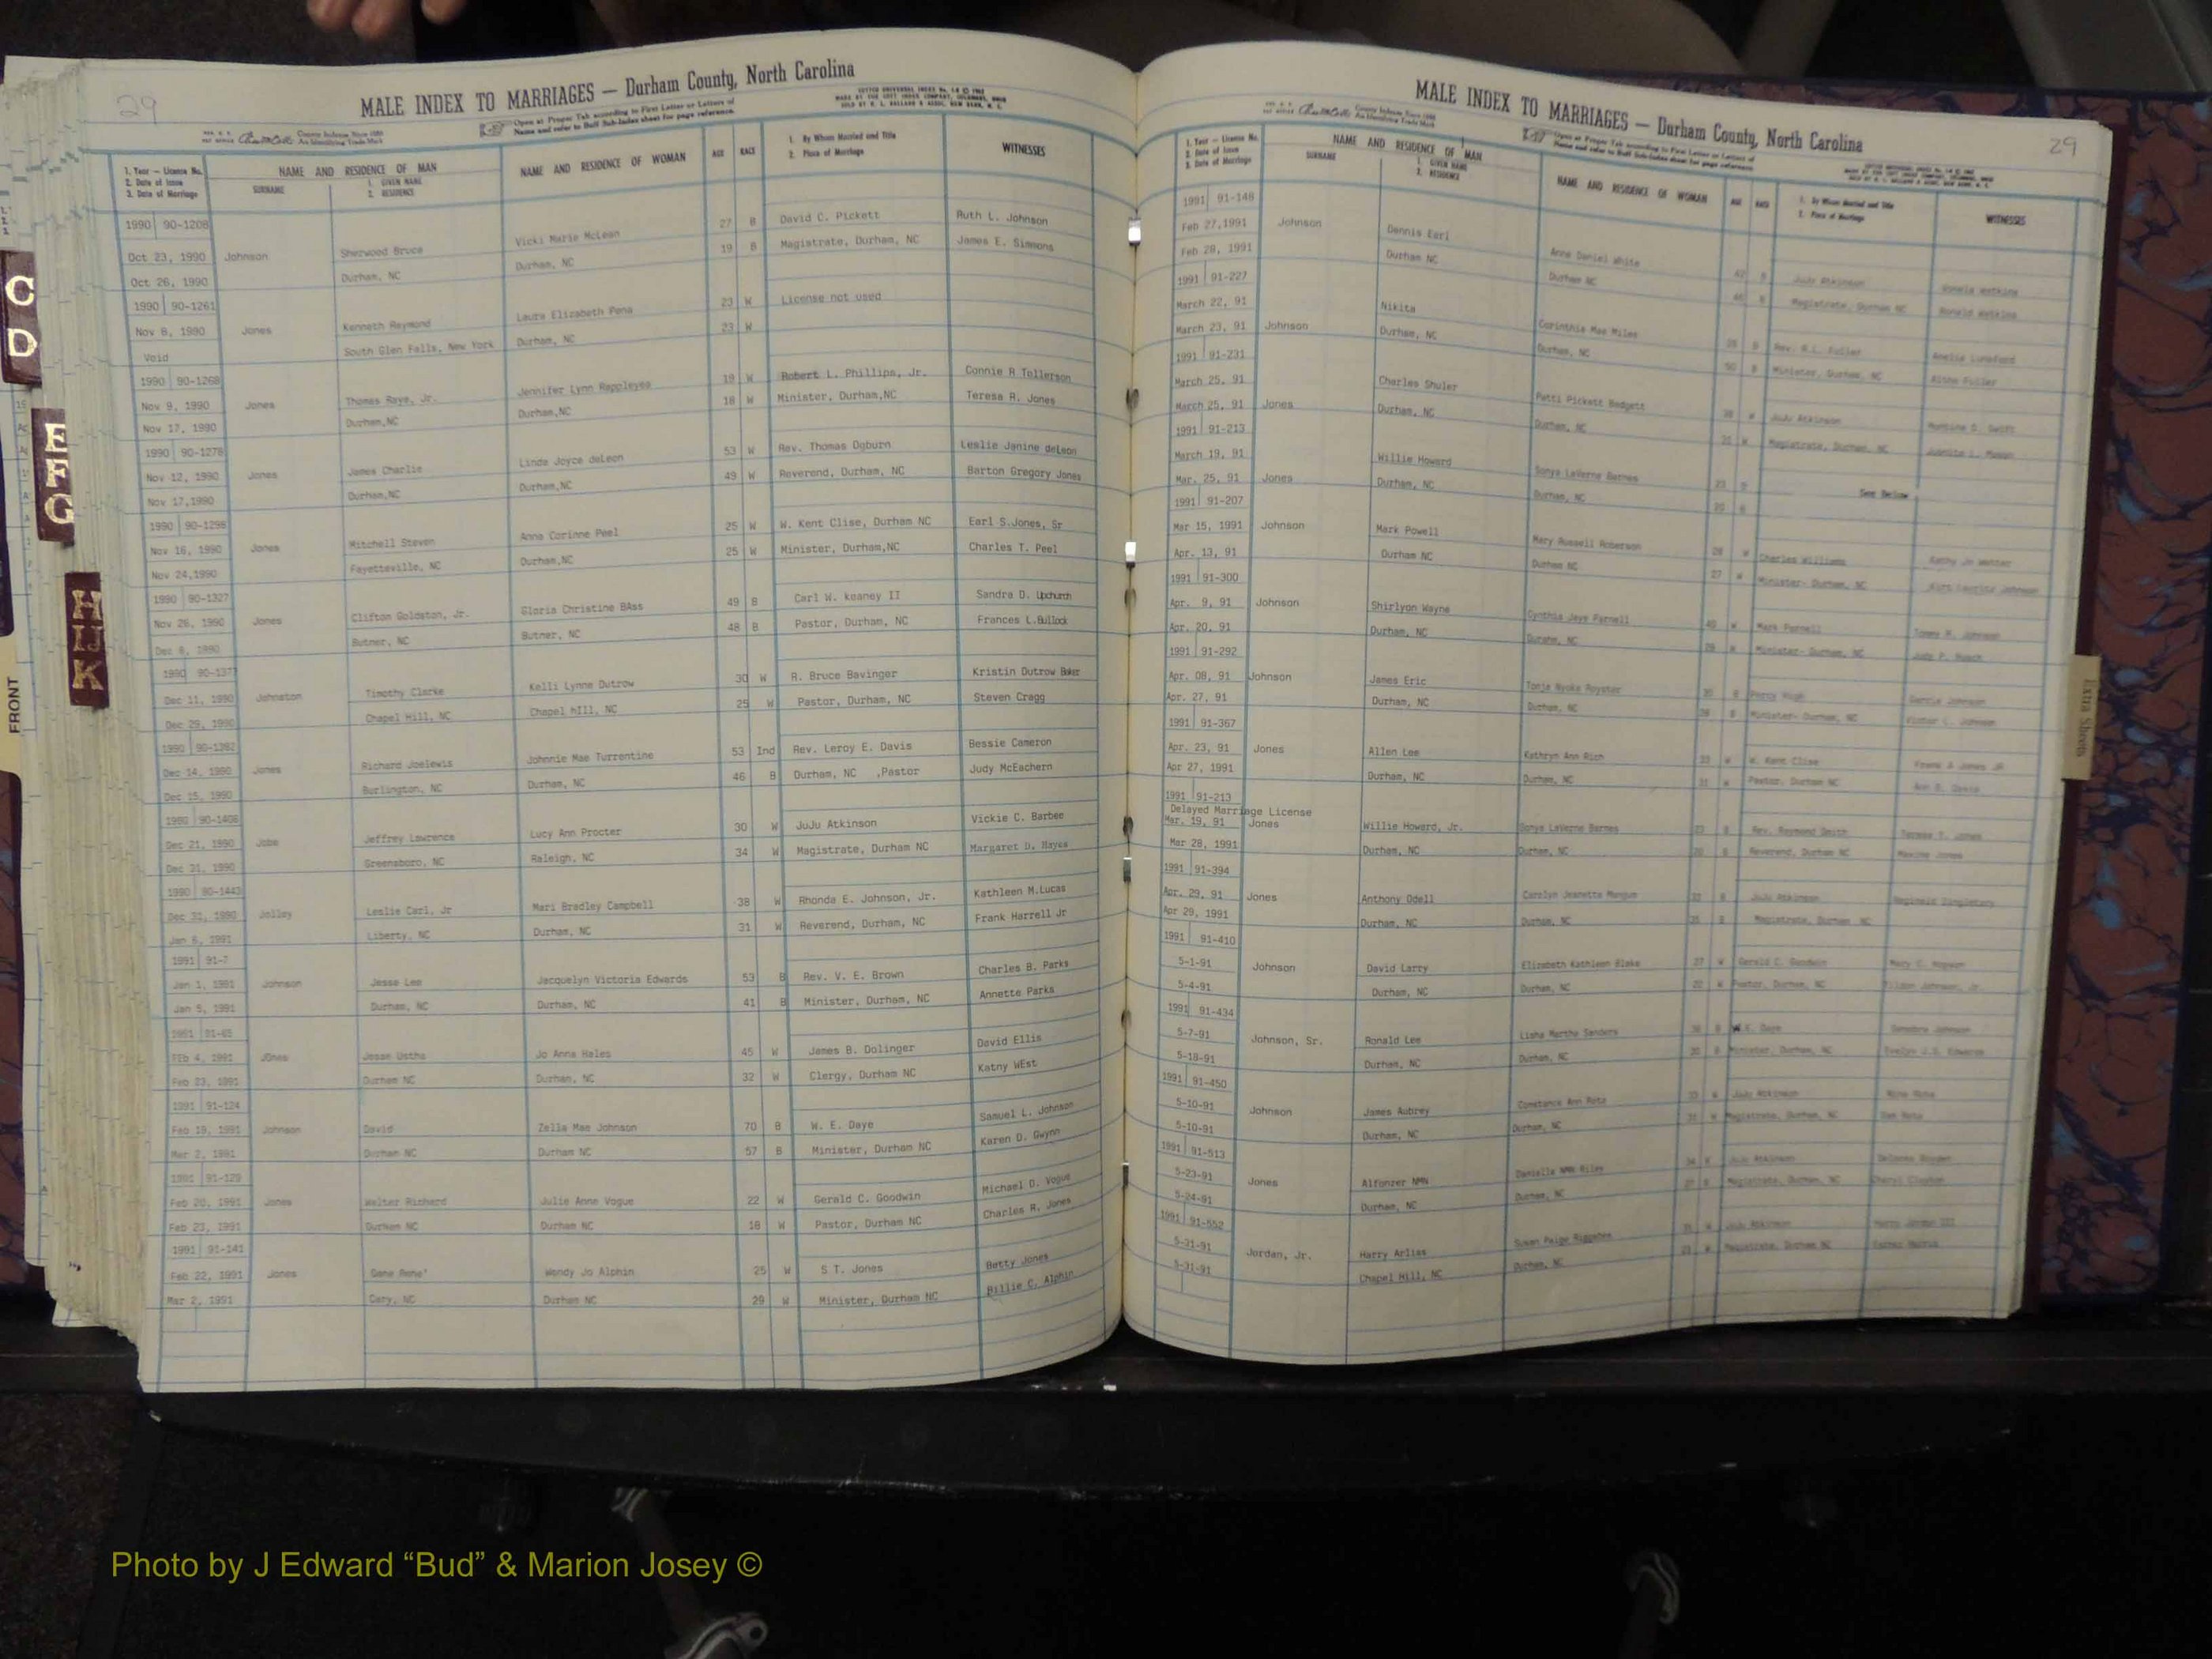 29
MALE INDEX TO MARRIAGES — Durham County, North Carolina
Open at Proper Tab according to First Letter or Letters of
Name and refer to Buff Sub-Index sheet for page reference.
1. Year — License No.
2. Date of Issue
3. Date of Marriage
NAME AND RESIDENCE OF MAN
SURNAME
1. GIVEN NAME
2. RESIDENCE
NAME AND RESIDENCE OF WOMAN
AGE
RACE
1. By Whom Married and Title
2. Place of Marriage
WITNESSES
1990 90-1208 27 B David C. Pickett Ruth L. Johnson
Oct 23, 1990 Johnson Sherwood Bruce Vicki Marie McLean 19 B Magistrate, Durham, NC James E. Simmons
Oct 26, 1990 Durham, NC Durham, NC
1990 90-1261 23 W License not used
Nov 8, 1990 Jones Kenneth Raymond Laura Elizabeth Pena 23 W
Void South Glen Falls, New York Durham, NC
1990 90-1268 19 W Robert L. Phillips, Jr. Connie R Tollerson
Nov 9, 1990 Jones Thomas Raye, Jr. Jennifer Lynn Rappleyea 18 W Minister, Durham,NC Teresa R. Jones
Nov 17, 1990 Durham,NC Durham,NC
1990 90-1278 53 W Rev. Thomas Ogburn Leslie Janine deLeon
Nov 12, 1990 Jones James Charlie Linda Joyce deLeon 49 W Reverend, Durham, NC Barton Gregory Jones
Nov 17,1990 Durham,NC Durham,NC
1990 90-1298 25 W W. Kent Clise, Durham NC Earl S.Jones, Sr
Nov 16, 1990 Jones Mitchell Steven Anna Corinne Peel 25 W Minister, Durham,NC Charles T. Peel
Nov 24,1990 Fayetteville, NC Durham,NC
1990 90-1327 49 B Carl W. keaney II Sandra D. Upchurch
Nov 26, 1990 Jones Clifton Goldston, Jr. Gloria Christine BAss 48 B Pastor, Durham, NC Frances L.Bullock
Dec 8, 1990 Butner, NC Butner, NC
1990 90-1377 30 W R. Bruce Bavinger Kristin Dutrow Baker
Dec 11, 1990 Johnston Timothy Clarke Kelli Lynne Dutrow 25 W Pastor, Durham, NC Steven Cragg
Dec 29, 1990 Chapel Hill, NC Chapel hIII, NC
1990 90-1382 53 Ind Rev. Leroy E. Davis Bessie Cameron
Dec 14, 1990 Jones Richard Joelewis Johnnie Mae Turrentine 46 B Durham, NC ,Pastor Judy McEachern
Dec 15, 1990 Burlington, NC Durham, NC
1990 90-1408 30 W JuJu Atkinson Vickie C. Barbee
Dec 21, 1990 Jobe Jeffrey Lawrence Lucy Ann Procter 34 W Magistrate, Durham NC Margaret D. Hayes
Dec 21, 1990 Greensboro, NC Raleigh, NC
1990 90-1443 38 W Rhonda E. Johnson, Jr. Kathleen M.Lucas
Dec 31, 1990 Jolley Leslie Carl, Jr Mari Bradley Campbell 31 W Reverend, Durham, NC Frank Harrell Jr
Jan 6, 1991 Liberty, NC Durham, NC
1991 91-7 53 B Rev. V. E. Brown Charles B. Parks
Jan 1, 1991 Johnson Jesse Lee Jacquelyn Victoria Edwards 41 B Minister, Durham, NC Annette Parks
Jan 5, 1991 Durham, NC Durham, NC
1991 91-85 45 W James B. Dolinger David Ellis
FEb 4, 1991 JOnes Jo Anna Hales 32 W Clergy, Durham NC Katny WEst
Feb 23, 1991 Durham NC Durham, NC
1991 91-124 70 B W. E. Daye Samuel L. Johnson
Feb 19, 1991 Johnson David Zella Mae Johnson 57 B Minister, Durham NC Karen D. Gwynn
Mar 2, 1991 Durham NC Durham NC
1991 91-129 22 W Gerald C. Goodwin Michael D. Vogue
Feb 20, 1991 Jones Walter Richard Julie Anne Vogue 18 W Pastor, Durham NC Charles R. Jones
Feb 23, 1991 Durham NC Durham NC
1991 91-141 25 W S T. Jones Betty Jones
Feb 22, 1991 Jones Gene Rene' Wendy Jo Alphin 29 W Minister, Durham NC Billie C. Alphin
Mar 2, 1991 Cary, NC Durham NC
MALE INDEX TO MARRIAGES — Durham County, North Carolina
29
1. Year — License No.
2. Date of Issue
3. Date of Marriage
NAME AND RESIDENCE OF MAN
SURNAME
1. GIVEN NAME
2. RESIDENCE
NAME AND RESIDENCE OF WOMAN
AGE
RACE
1. By Whom Married and Title
2. Place of Marriage
WITNESSES
1991 91-148
Feb 27,1991 Johnson Dennis Earl Anna Daniel White JuJu Atkinson Ronald Watkins
Feb 28, 1991 Durham NC Durham NC Magistrate, Durham NC Ronald Watkins
1991 91-227
March 22, 91 Nikita Corinthia Mae Miles Rev. Amelia Lunsford
March 23, 91 Johnson Durham, NC Durham, NC Minister, Durham, NC Fuller
1991 91-231
March 25, 91 Charles Shuler Patti Pickett Badgett JuJu Atkinson
March 25, 91 Jones Durham, NC Durham, NC Magistrate, Durham, NC
1991 91-213
March 19, 91 Willie Howard Sonya LaVerne Barnes 23 B See Below
Mar. 25, 91 Jones Durham, NC Durham, NC 20 B
1991 91-207
Mar 15, 1991 Johnson Mark Powell Mary Russell Roberson 28 W Charles Williams
Apr. 13, 91 Durham NC Durham NC 27 W Minister- Durham, NC
1991 91-300
Apr. 9, 91 Johnson Shirlyon Wayne Cynthia Jaye Parnell Mark Parnell
Apr. 20, 91 Durham, NC Durahm, NC Minister- Durham, NC
1991 91-292
Apr. 08, 91 Johnson James Eric Tonja Nyoka Royster Johnson
Apr. 27, 91 Durham, NC Durham, NC Minister- Durham, NC Johnson
1991 91-367
Apr. 23, 91 Jones Allen Lee Kathryn Ann Rich 33 W W. Kent Clise
Apr 27, 1991 Durham, NC Durham, NC 31 W Pastor, Durham NC
1991 91-213
Delayed Marriage License
Mar. 19, 91 Jones Willie Howard, Jr. Sonya LaVerne Barnes 23 B Rev. Raymond Smith Teresa T. Jones
Mar 28, 1991 Durham, NC Durham, NC 20 B Reverend, Durham NC Maxine Jones
1991 91-394
Apr. 29, 91 Jones Anthony Odell Carolyn Jeanette Mangum JuJu Atkinson Reginald Singletary
Apr 29, 1991 Durham, NC Durham, NC Magistrate, Durham NC
1991 91-410
5-1-91 Johnson David Larry Elizabeth Kathleen Blake 27 W Gerald C. Goodwin
5-4-91 Durham, NC Durham, NC 22 W Pastor, Durham, NC Johnson, Jr.
1991 91-434
5-7-91 Johnson, Sr. Ronald Lee Lisha Martha Sanders W.E. Daye Johnson
5-18-91 Durham, NC Durham, NC Minister, Durham, NC Evelyn J.S. Edwards
1991 91-450
5-10-91 Johnson James Aubrey Constance Ann JuJu Atkinson
5-10-91 Durham, NC Durham, NC Magistrate, Durham, NC
1991 91-513
5-23-91 Jones Alfonzer NMN Danielle NMN Riley JuJu Atkinson
5-24-91 Durham, NC Durham, NC Magistrate, Durham, NC Cheryl Clayton
1991 91-552
5-31-91 Jordan, Jr. Harry Arliss Susan Paige Riggsbee JuJu Atkinson
5-31-91 Chapel Hill, NC Durham, NC Magistrate, Durham NC
C
D
E
F
G
H
IJ
K
FRONT
Extra Sheets
Photo by J Edward “Bud” & Marion Josey ©